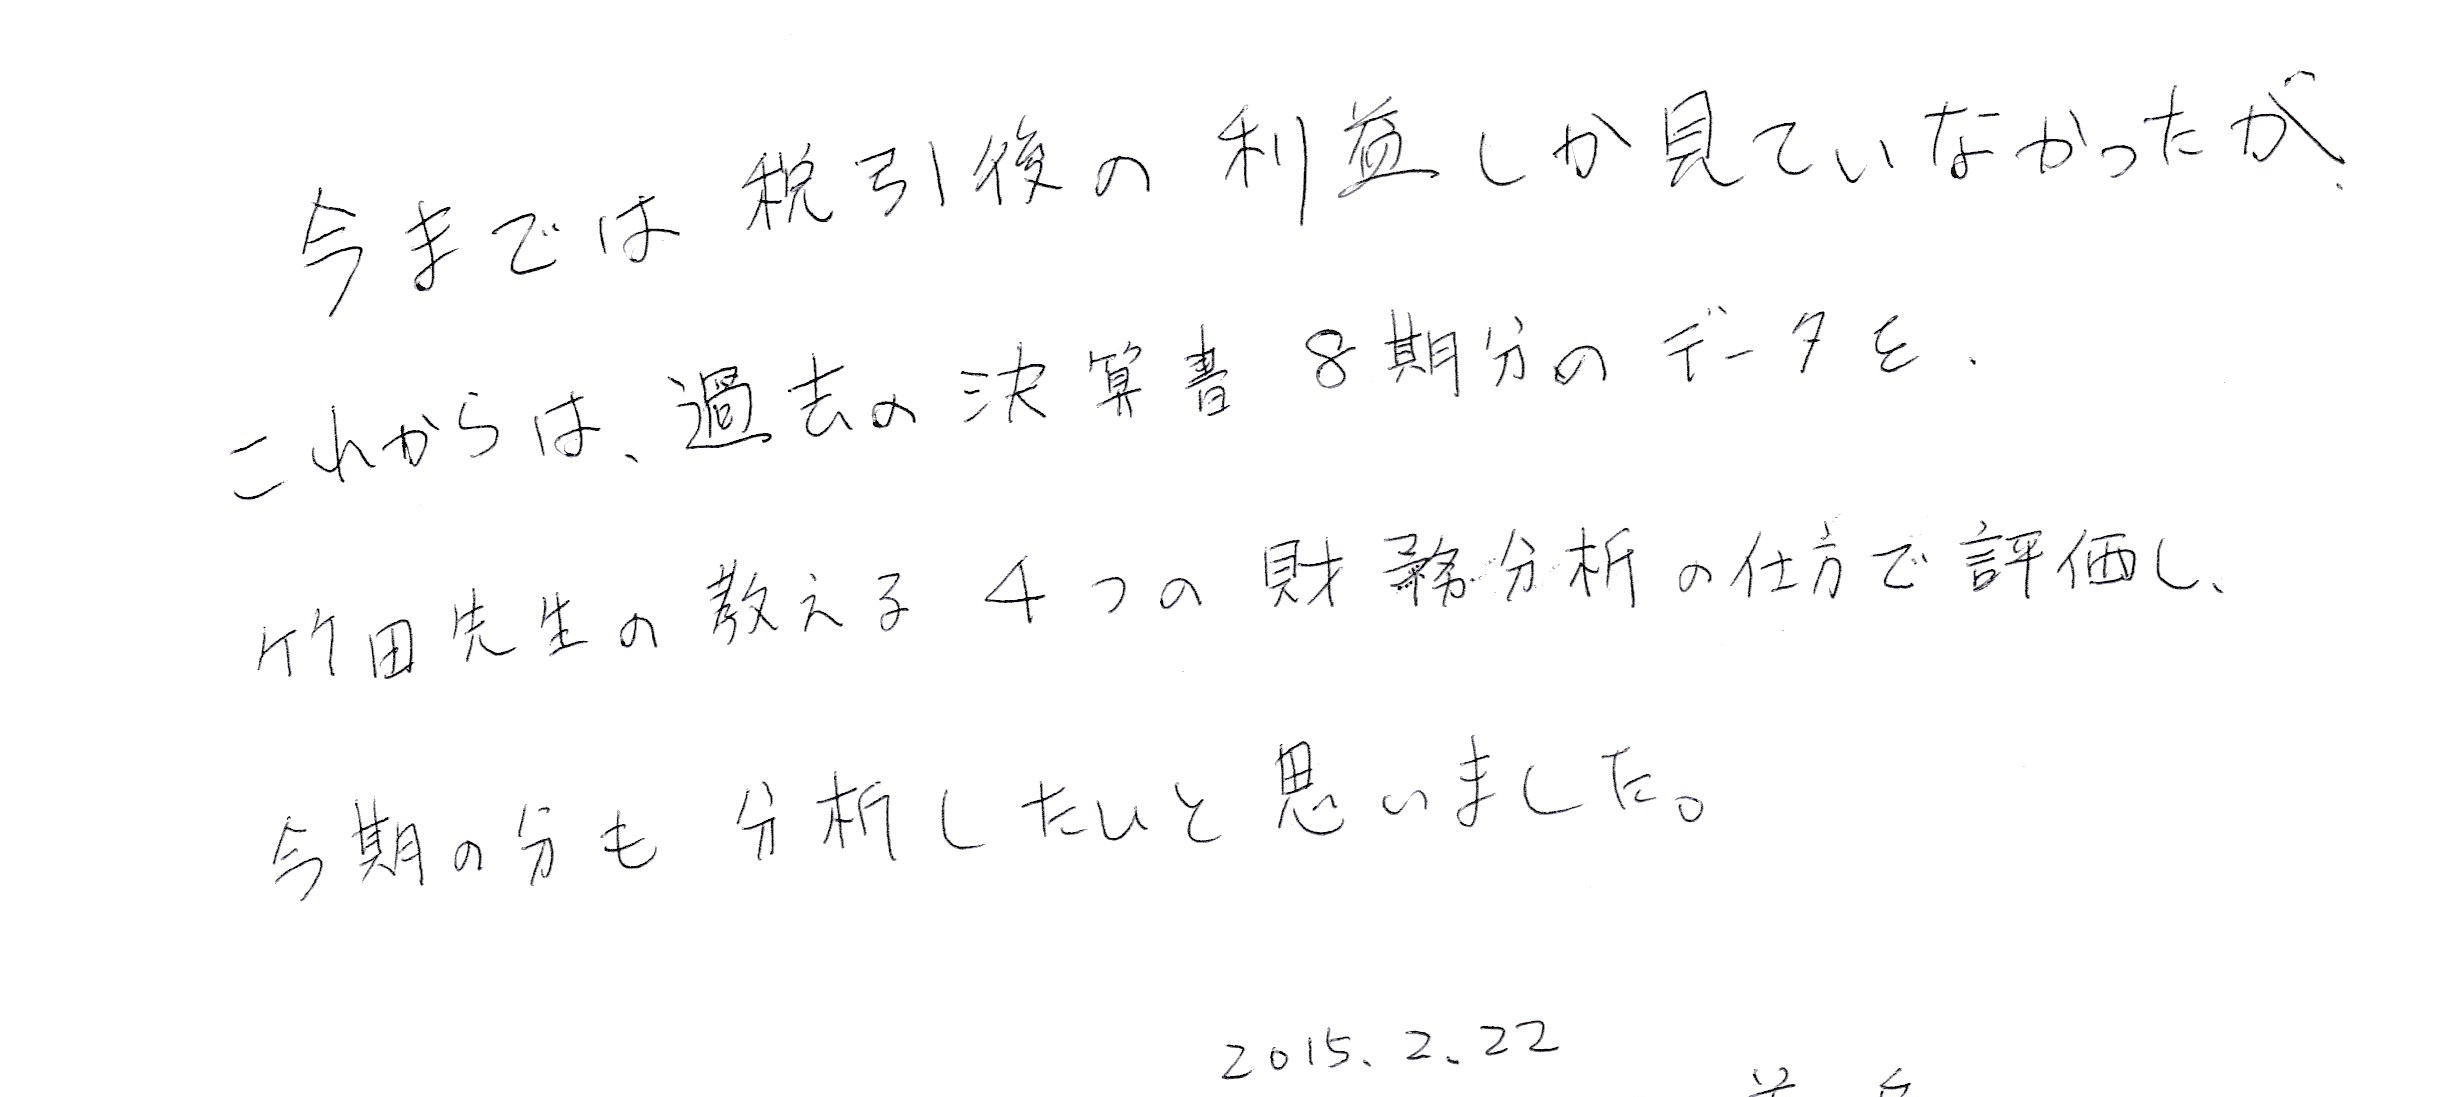 今までは税引後の利益しか見ていなかったが、
これからは、過去の決算書8期分のデータを、
竹田先生の教える4つの財務分析の仕方で評価し、
今期の分も分析したいと思いました。
2015.2.22